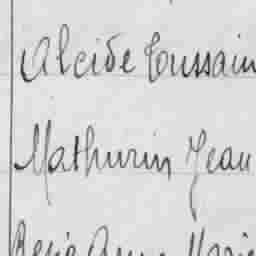 Alcide Toussain
Mathurin Jean
Marie